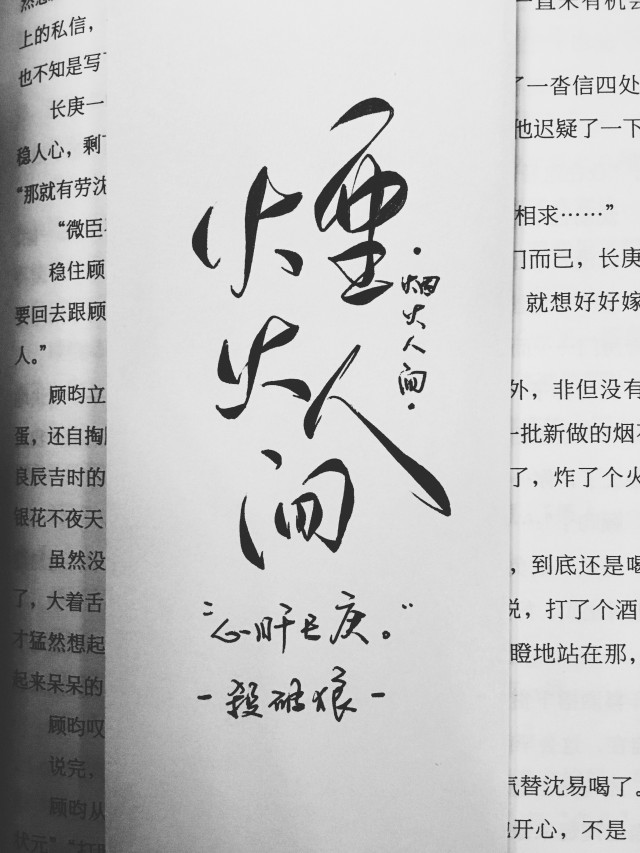 上的私信，
也不知是写
长庚一
稳人心，剩
“那就有劳沈
“微臣
稳住顾
要回去跟顾
人。”
顾昀立
蛋，还自掏
良辰吉时的
银花不夜天
虽然没
了，大着舌
才猛然想起
起来呆呆的
顾昀叹
说完，
顾昀从
状元”
煙
火人
间
·烟火人间·
“心肝长庚。”
-殺破狼-
一直未有机会
了一沓信四处
他迟疑了一下
相求……”
门而已，长庚
就想好好嫁
外，非但没有
一批新做的烟
了，炸了个火
，到底还是喝
说，打了个酒
瞪地站在那，
气替沈易喝了。
开心，不是